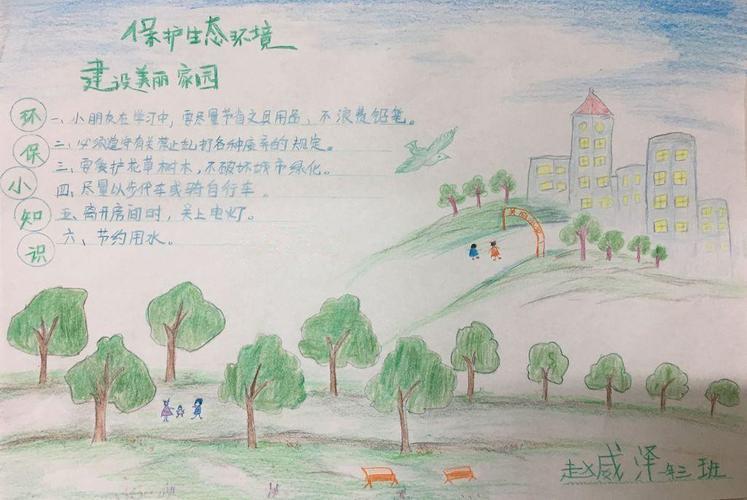 保护生态环境
建设美丽家园
环保小知识
一、小朋友在学习中，要尽量节省文具用品、不浪费铅笔。
二、必须遵守有关禁止乱打各种废弃的规定。
三、要爱护花草树木，不破坏城市绿化。
四、尽量以步代车或骑自行车。
五、离开房间时，关上电灯。
六、节约用水。
赵威泽 一年三班